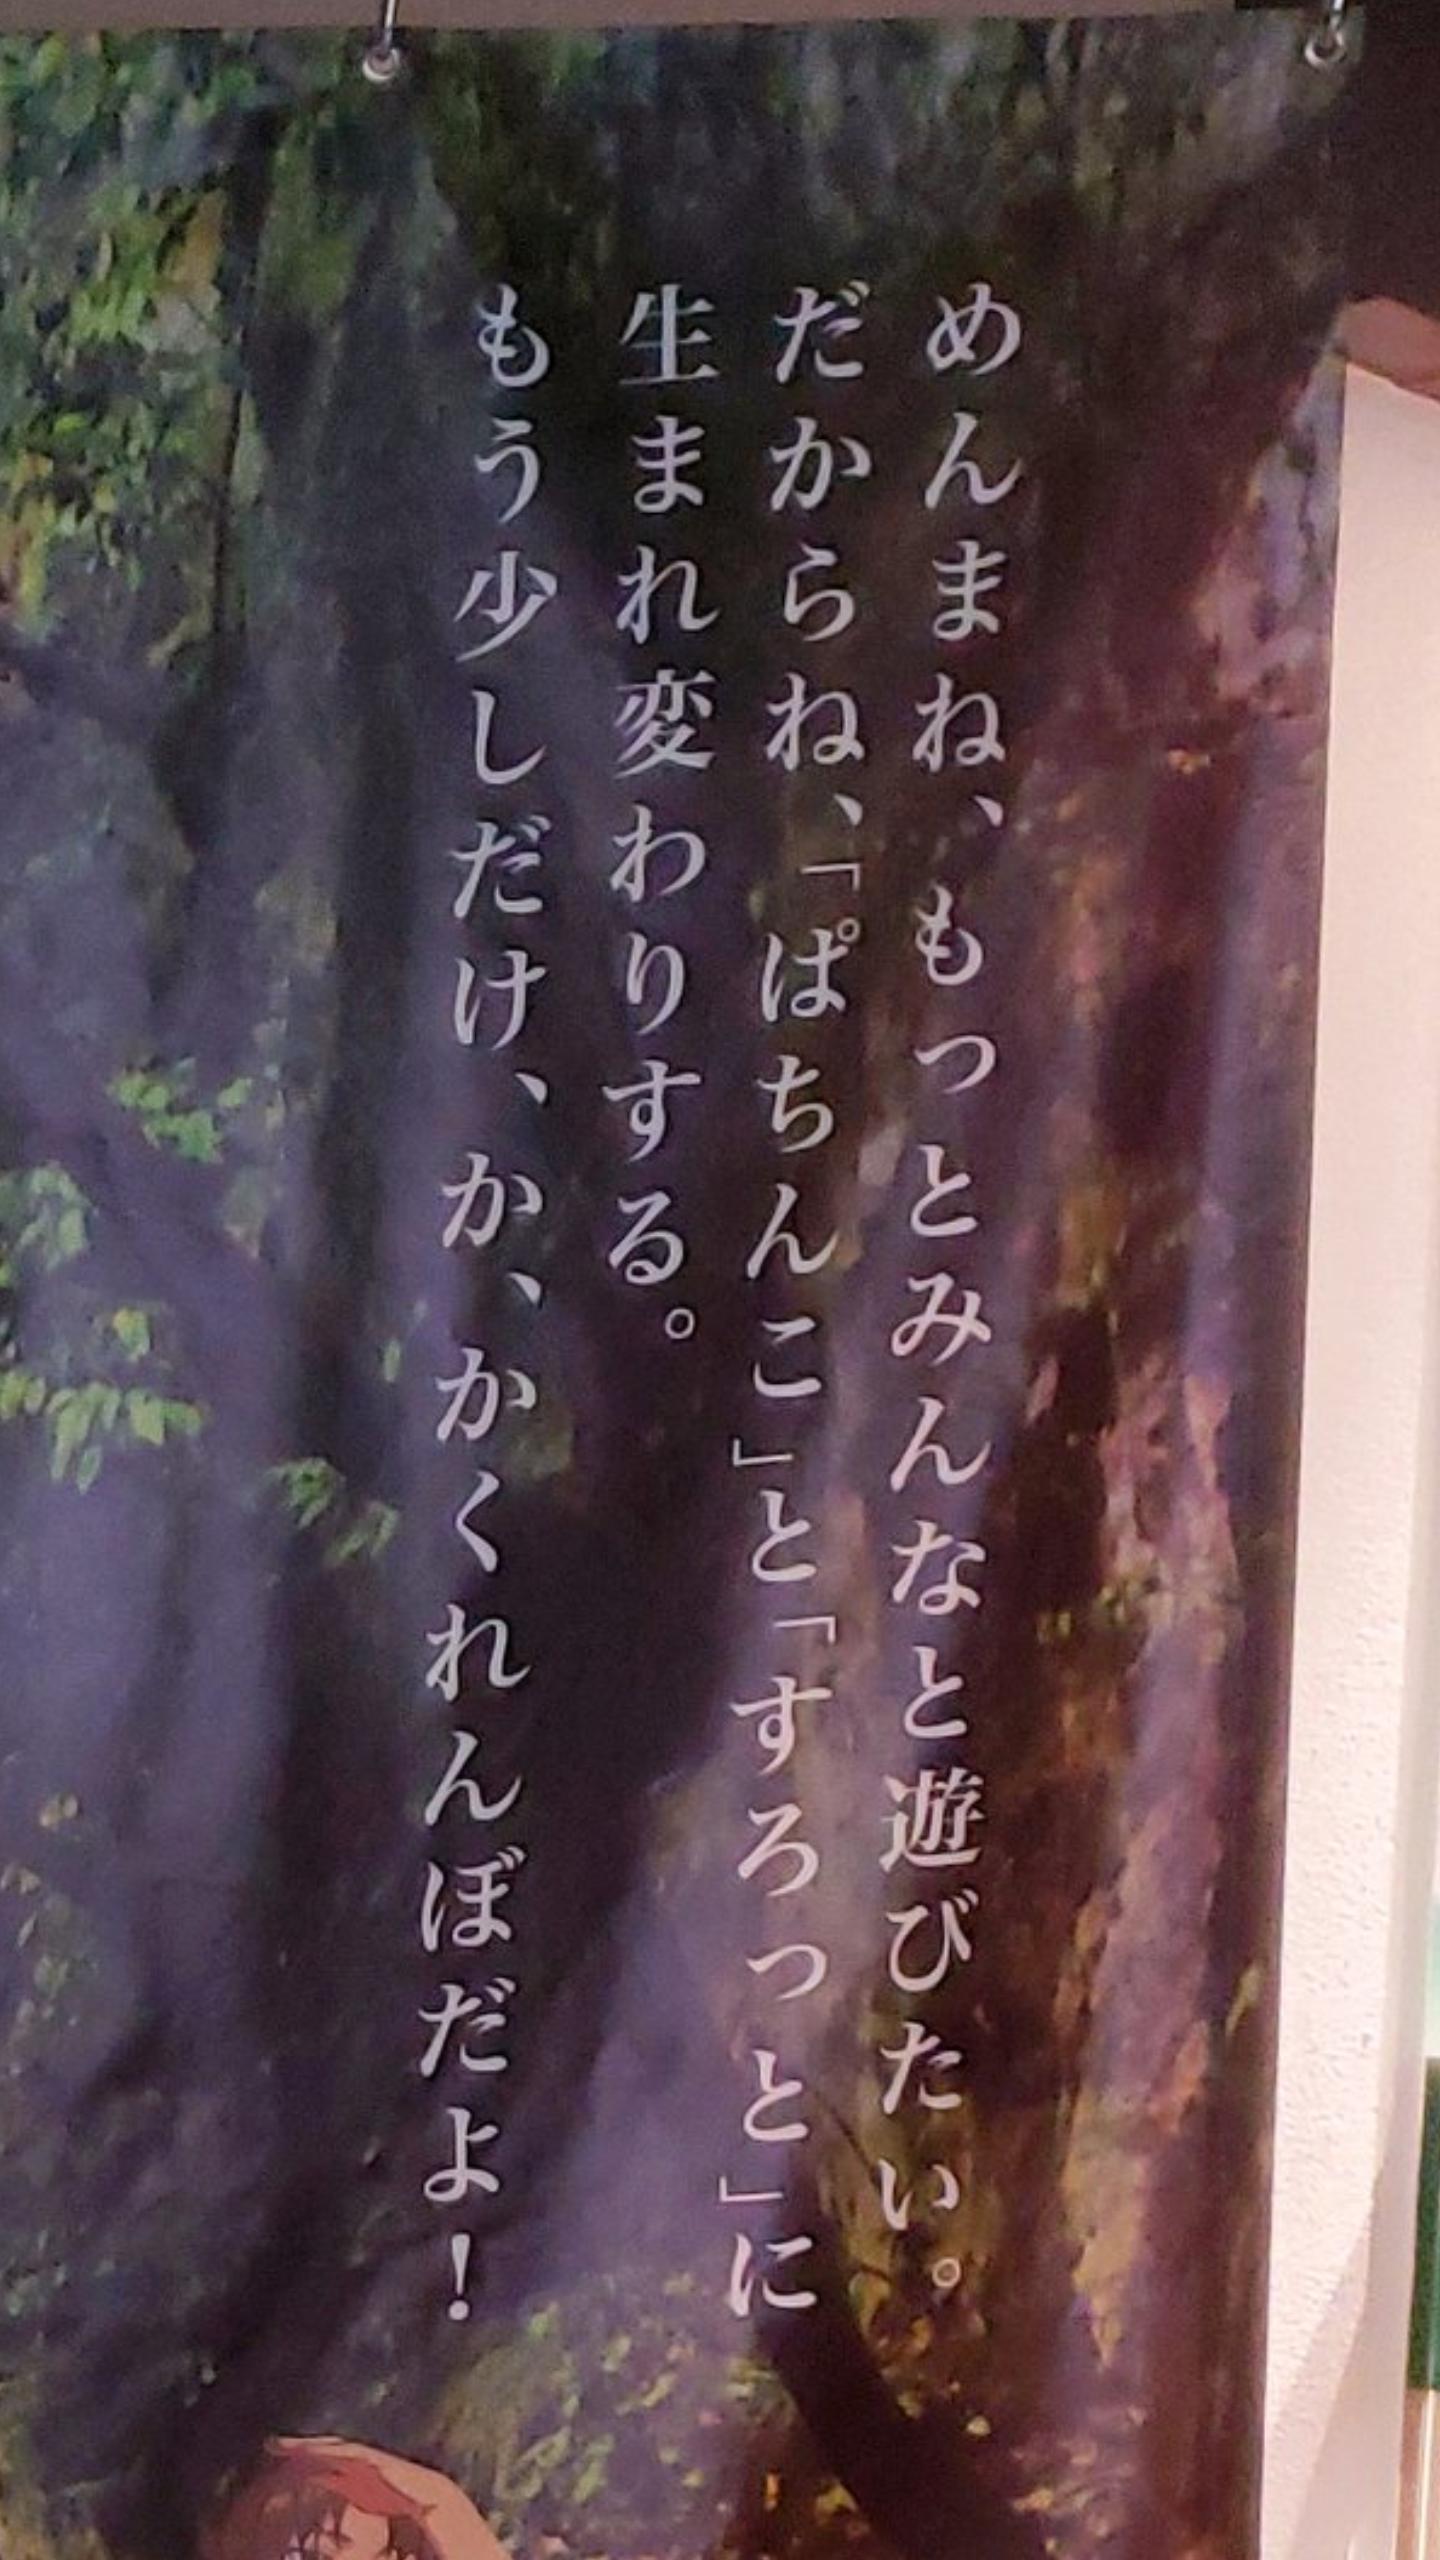 めんまね、もっとみんなと遊びたい。
だからね、「ぱちんこ」と「すろっと」に
生まれ変わりする。
もう少しだけ、か、かくれんぼだよ！